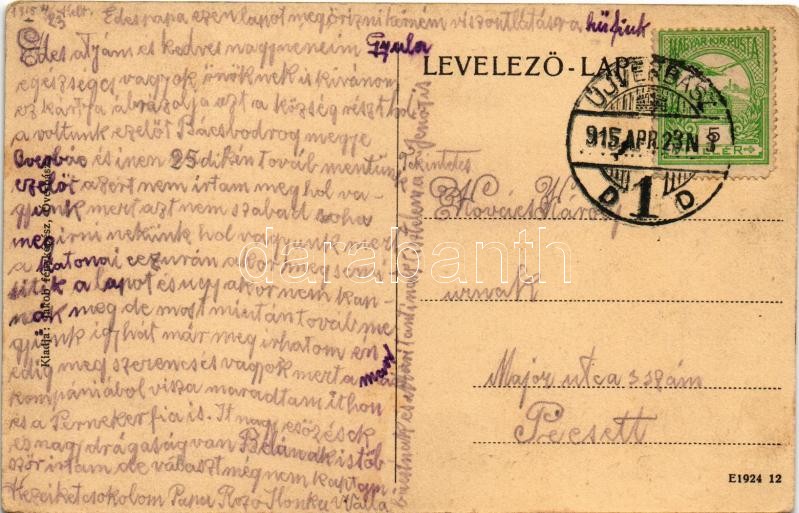 1915 4/23
Édes apa ezen lapot megőrizni kérném viszontlátásra hű fiuk
Édes atyám es kedves nagyneneim Gyula
egészséges vagyok önöknek is kivánom
ez kártya ábrázolja azt a község részt hol
a voltunk ezelőt Bácsbodrog megye
Overbász és inen 25 dikén továb mentünk
ezelőt azért nem irtam meg hol va-
gyunk mert azt nem szabad soha
megirni nekünk hol vagyunk mert
a katonai cezurán akor megsemi
sitik a lapot és ugyakor nem kap-
nák meg de most miután továb me
gyünk igy hát már meg irhatom én
edig meg szerencsés vagyok mert a mars
kompániából visza maradtam itthon
es a Perneker fia is. It nagy esőzések
és nagy drágaság van Bélának is töb
ször irtam de választ még nem kaptam
Kezeiket csokolom Papa Rozó Ilonka
LEVELEZŐ-LAP
MAGYAR KIR. POSTA
5
FILLÉR
ÚJVERBÁSZ
915 APR. 23 N
D 1 D
Tekintetes
Kovács Károly
urnak
Major utca 3 szám
Pécsett
Kiadja: Jakob fényképész,
E1924 12
darabanth